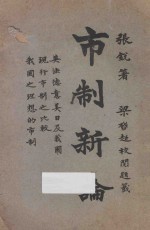 張銳著 梁啓超校閱題
市制新論
英法德意美日及我國
現行市制之比較
我國之理想的市制